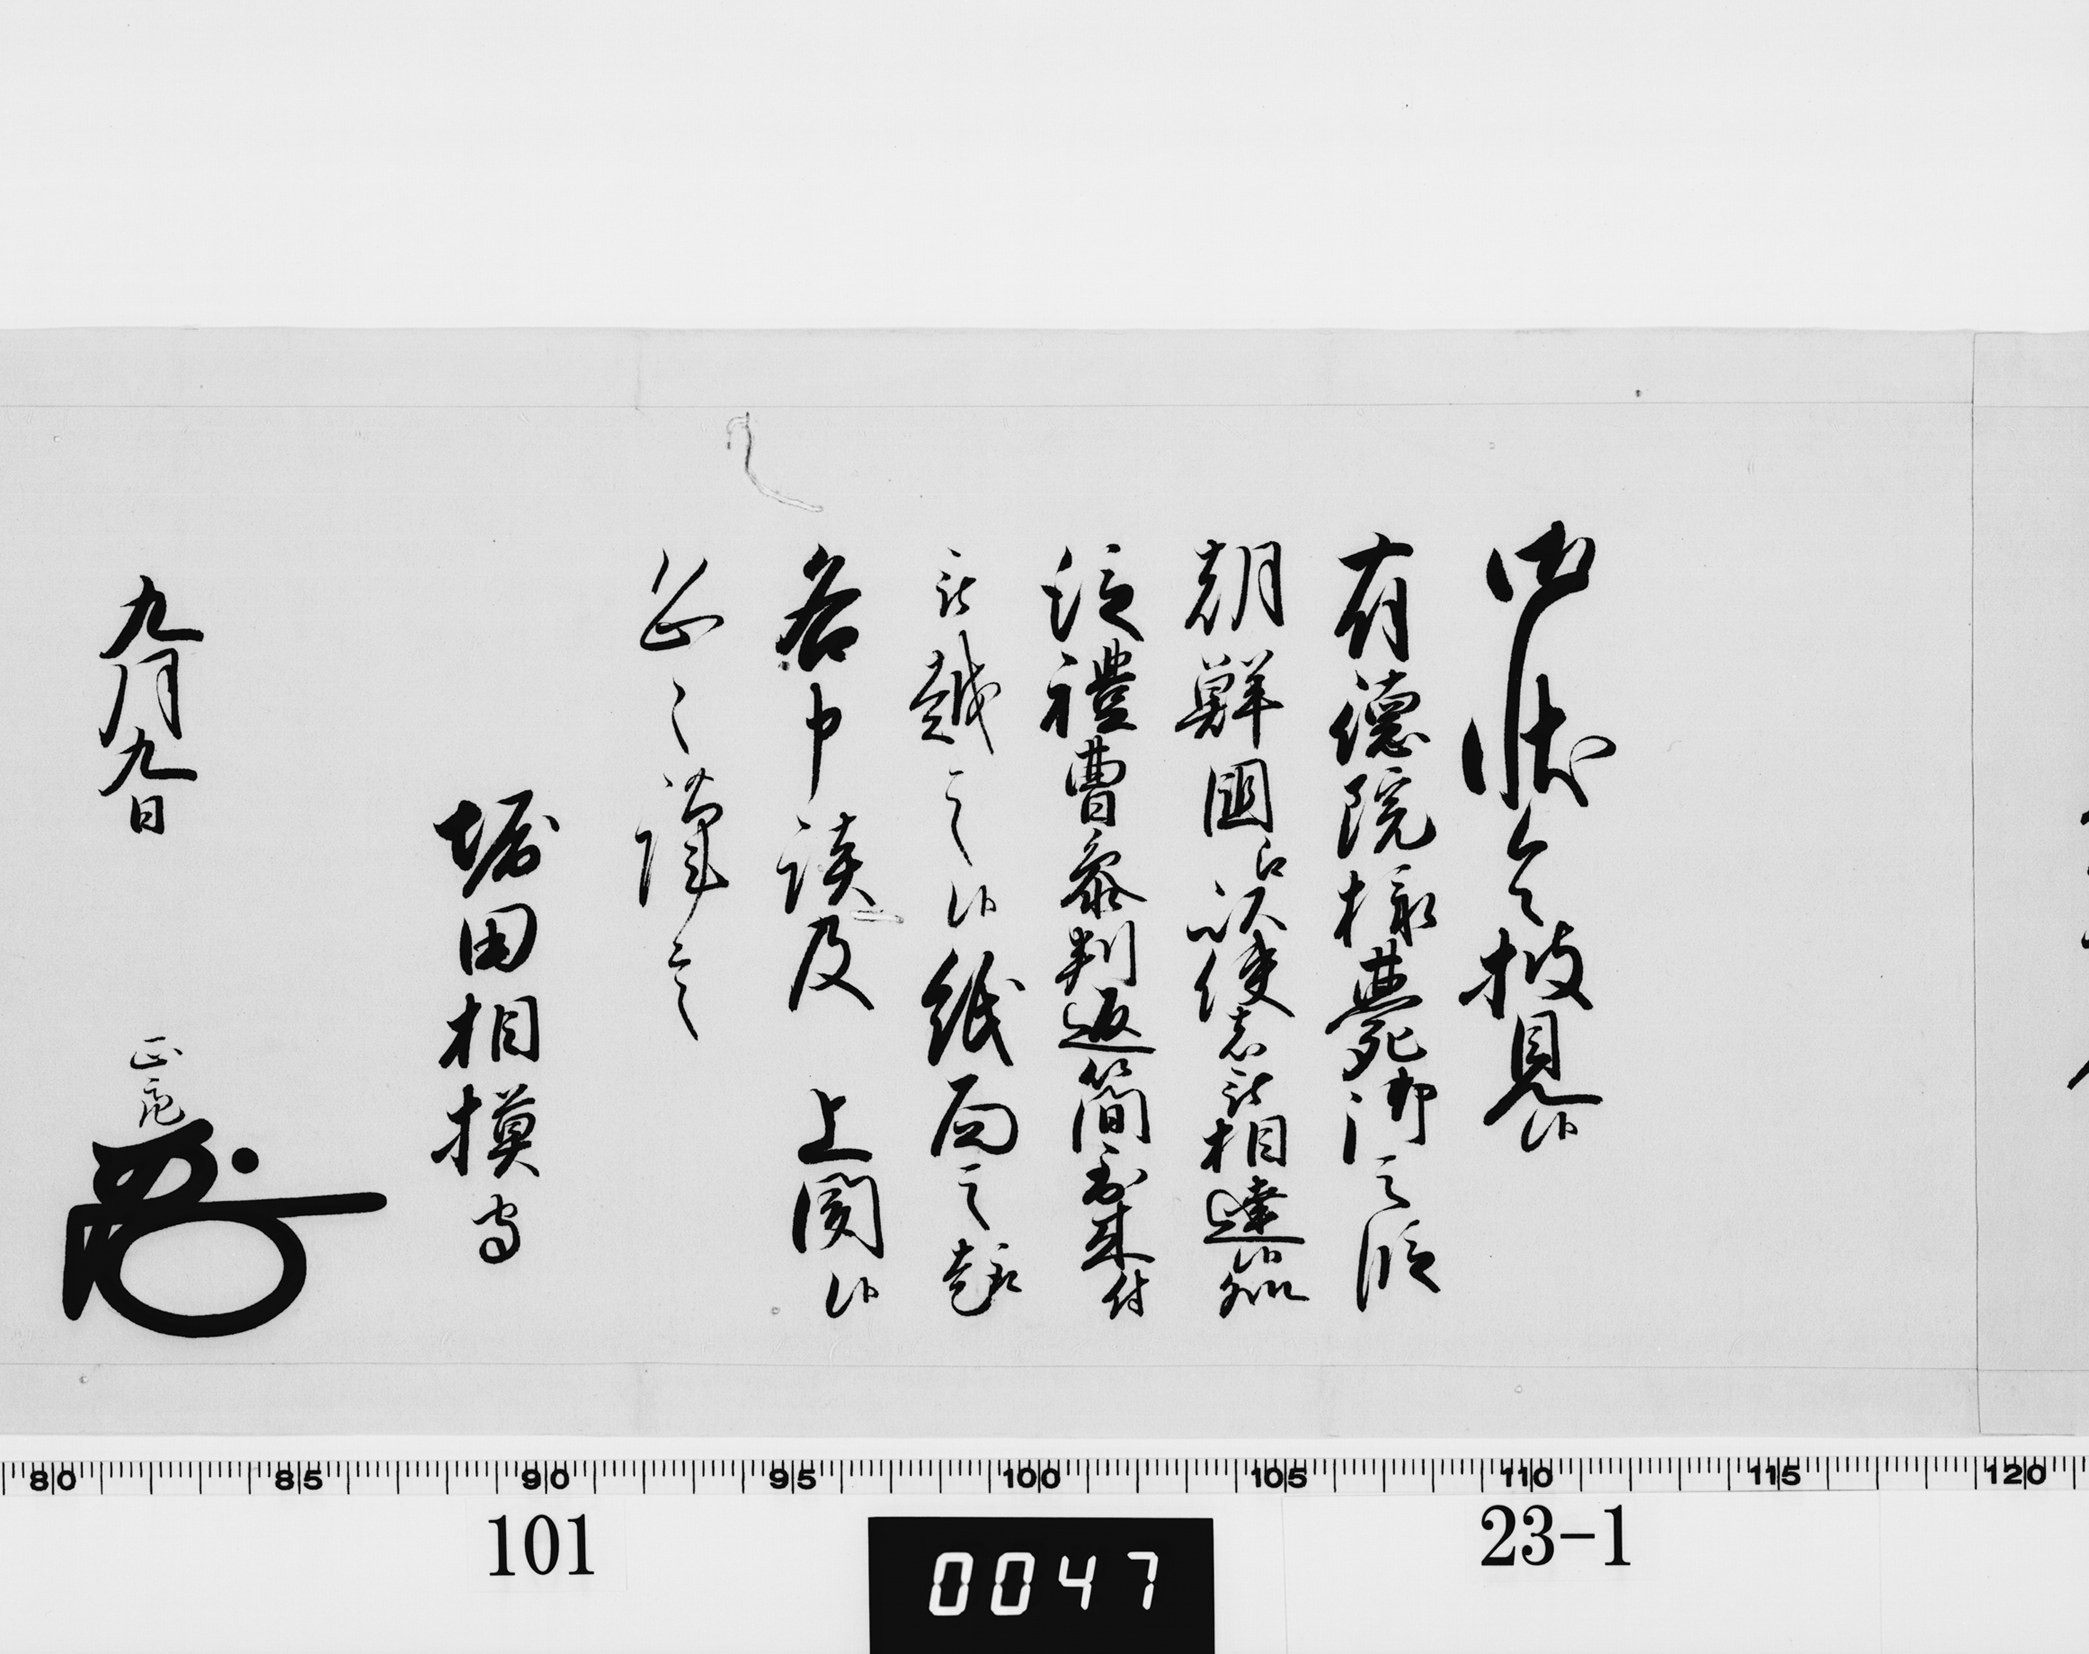 御状令披見候
有徳院様薨御之段
朝鮮国江以使者被相達候処
従禮曹参判返簡到来付
被越之候紙面之趣
各申談及 上聞候
恐々謹言
堀田相摸守
九月九日
正亮
80 85 90 95 100 105 110 115 120
101
0047
23-1